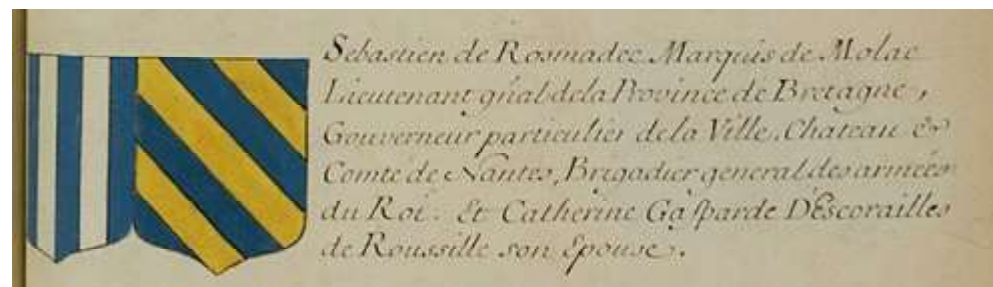 Sebastien de Rosmadec Marquis de Molac
Lieutenant gñal de la Province de Bretagne,
Gouverneur particulier de la Ville, Chateau &
Comté de Nantes, Brigadier general des armées
du Roi. Et Catherine Gasparde D'Escorailles
de Roussille son Epouse.